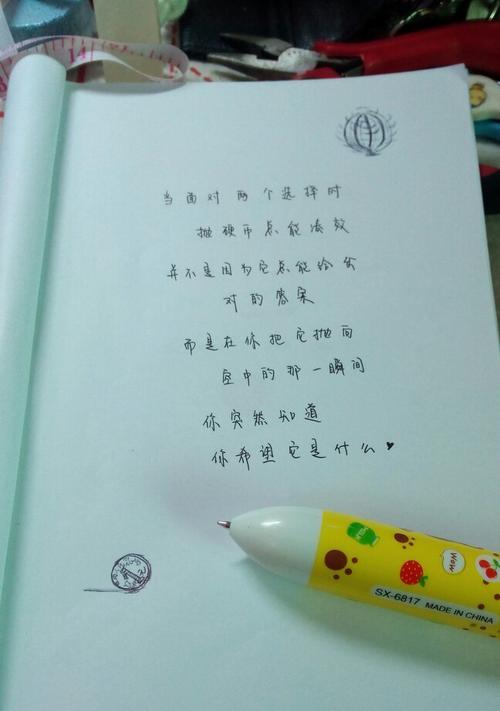 当面对两个选择时
抛硬币总能凑效
并不是因为它总能给出
对的答案
而是在你把它抛向
空中的那一瞬间
你突然知道
你希望它是什么♥
Wow
SX-6817 MADE IN CHINA
14